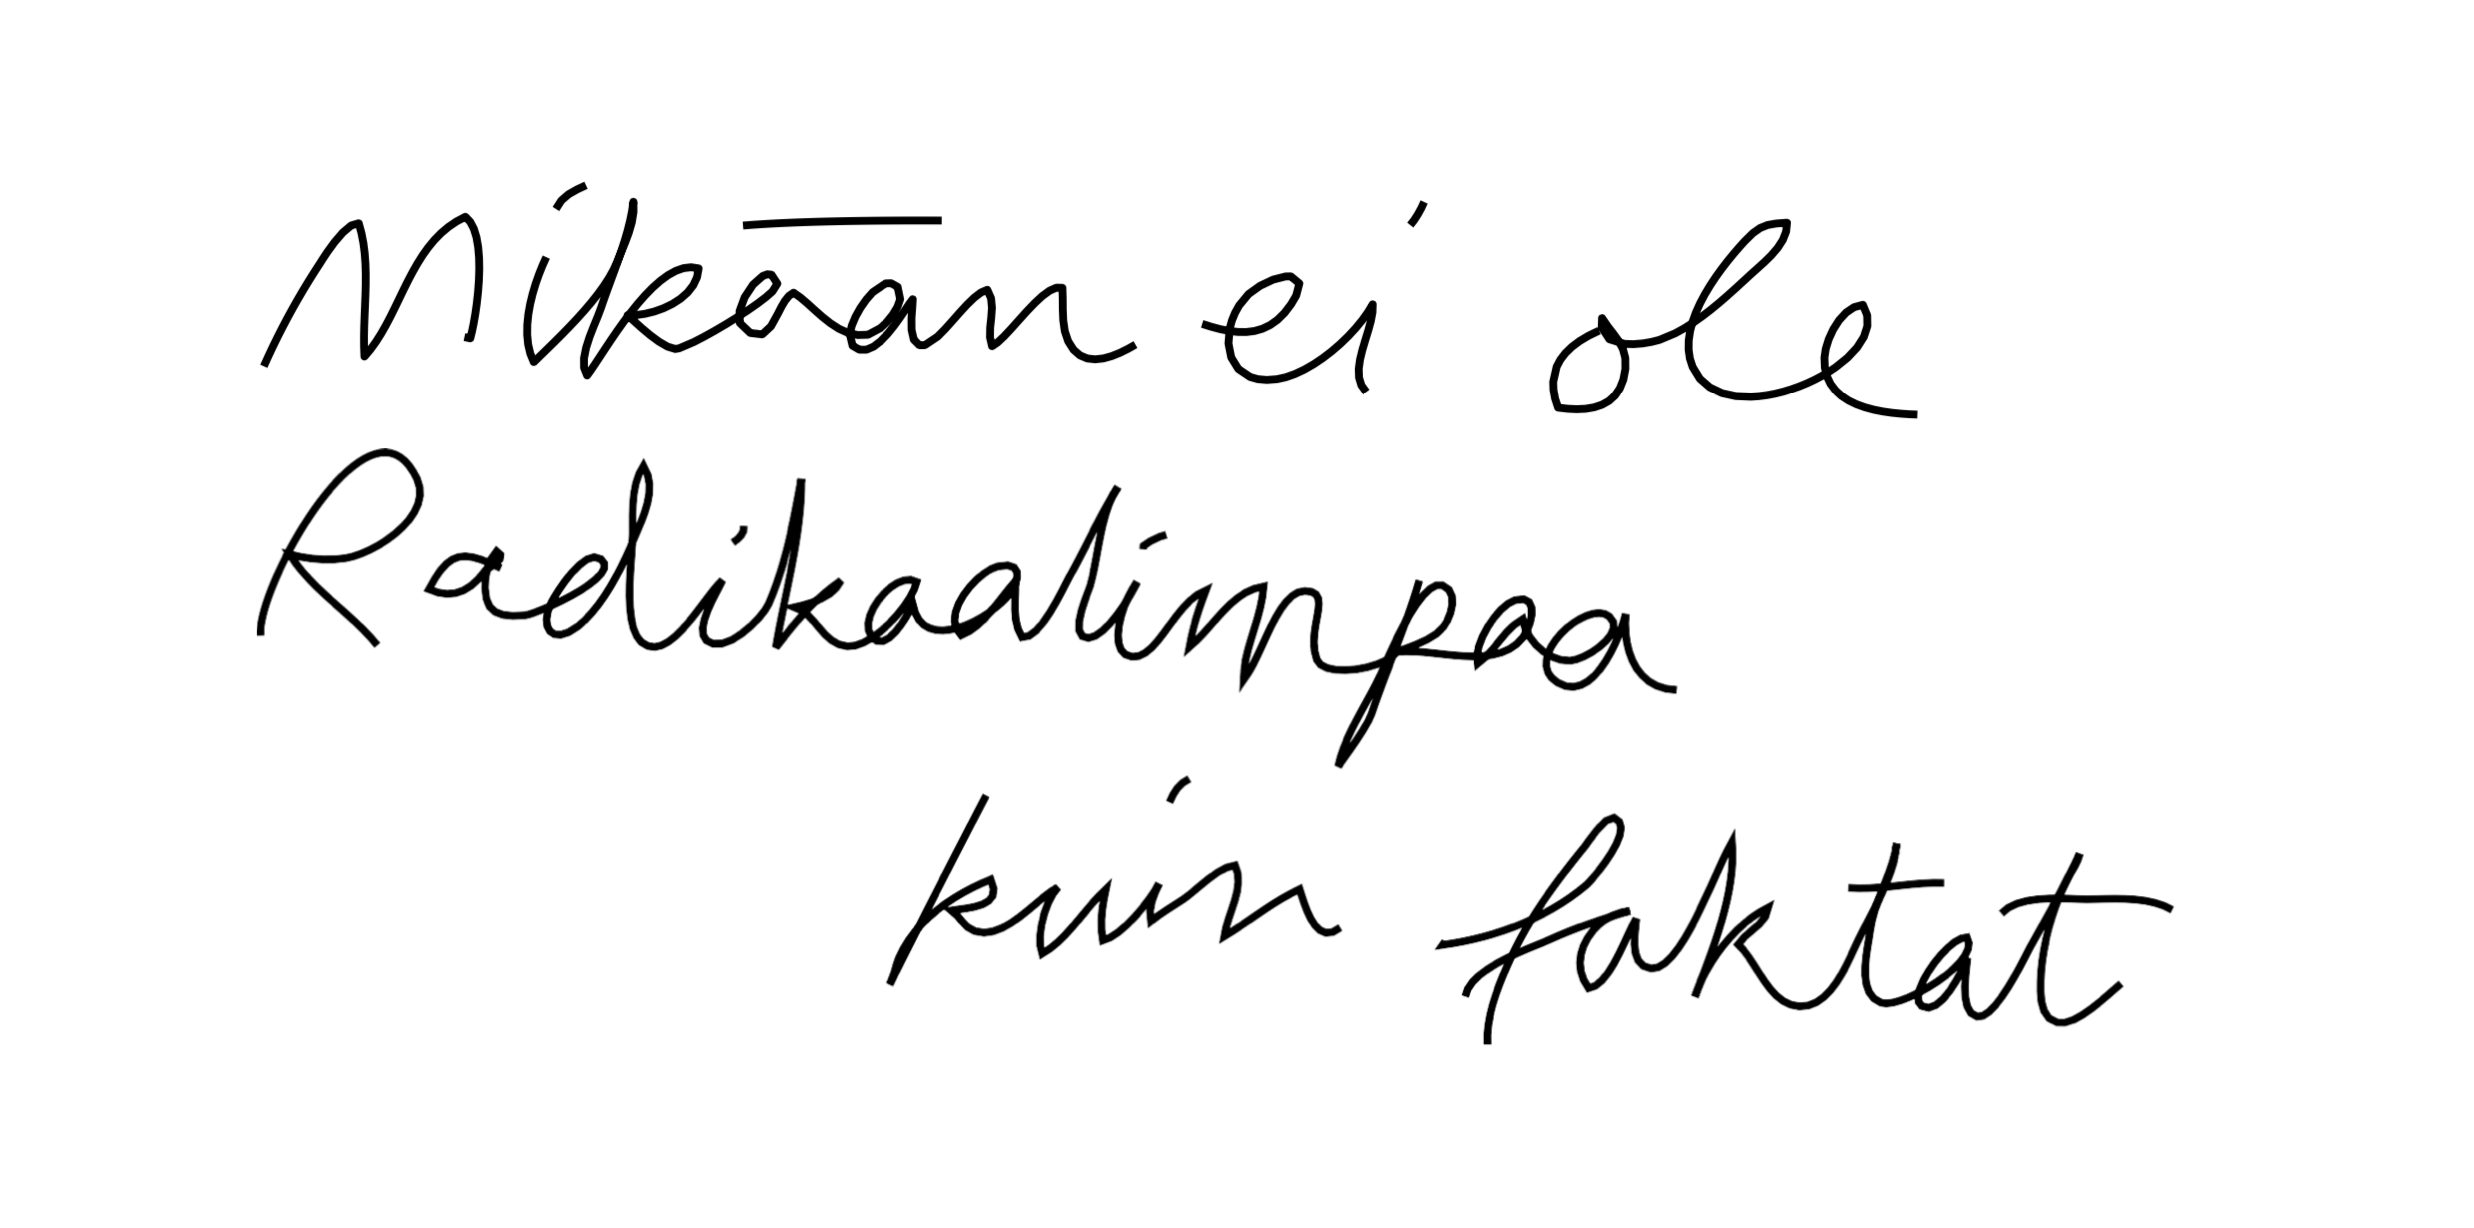 Mikään ei ole
Radikaalimpaa
kuin faktat